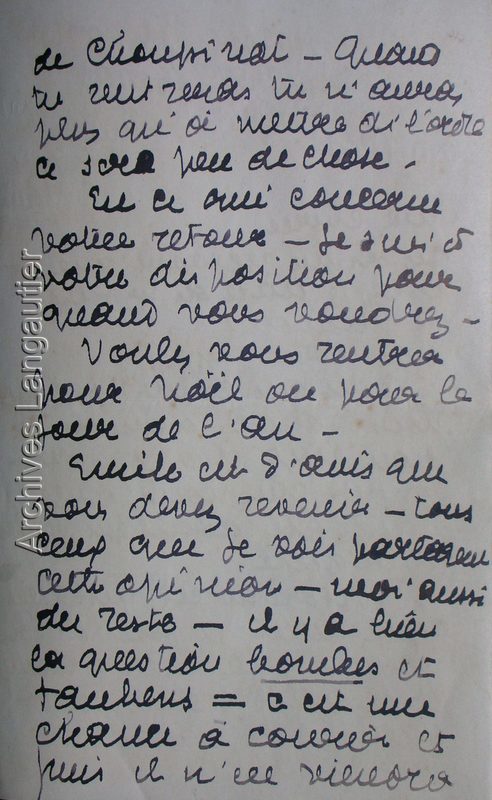 de Choupinot – Quand
tu rentreras tu n'auras
plus qu'à mettre de l'ordre
ce sera peu de chose.
En ce qui concerne
votre retour – Je suis à
votre disposition pour
quand vous voudrez –
Voulez vous rentrer
pour Noël ou pour le
jour de l'an –
Emile est d'avis que
vous devez revenir – tous
ceux que je vois partagent
cette opinion – moi aussi
du reste – il y a bien
la question bombes et
= c'est une
chance à courir et
puis il n'en viendra
Archives Langautier